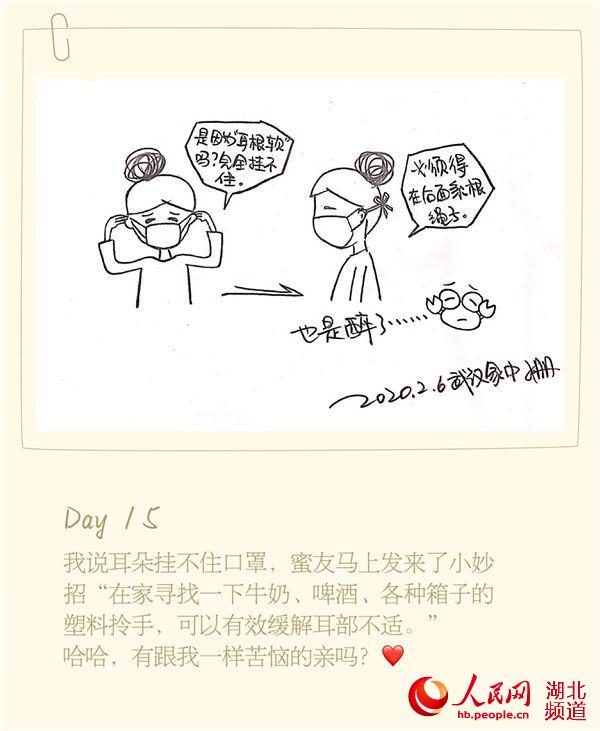 是因为“耳根软”
吗？完全挂不
住。
必须得
在后面系根
绳子。
也是醉了……
2020.2.6 武汉家中 姗
Day 15
我说耳朵挂不住口罩，蜜友马上发来了小妙
招“在家寻找一下牛奶、啤酒、各种箱子的
塑料拎手，可以有效缓解耳部不适。”
哈哈，有跟我一样苦恼的亲吗？
人民网
hb.people.cn
湖北
频道